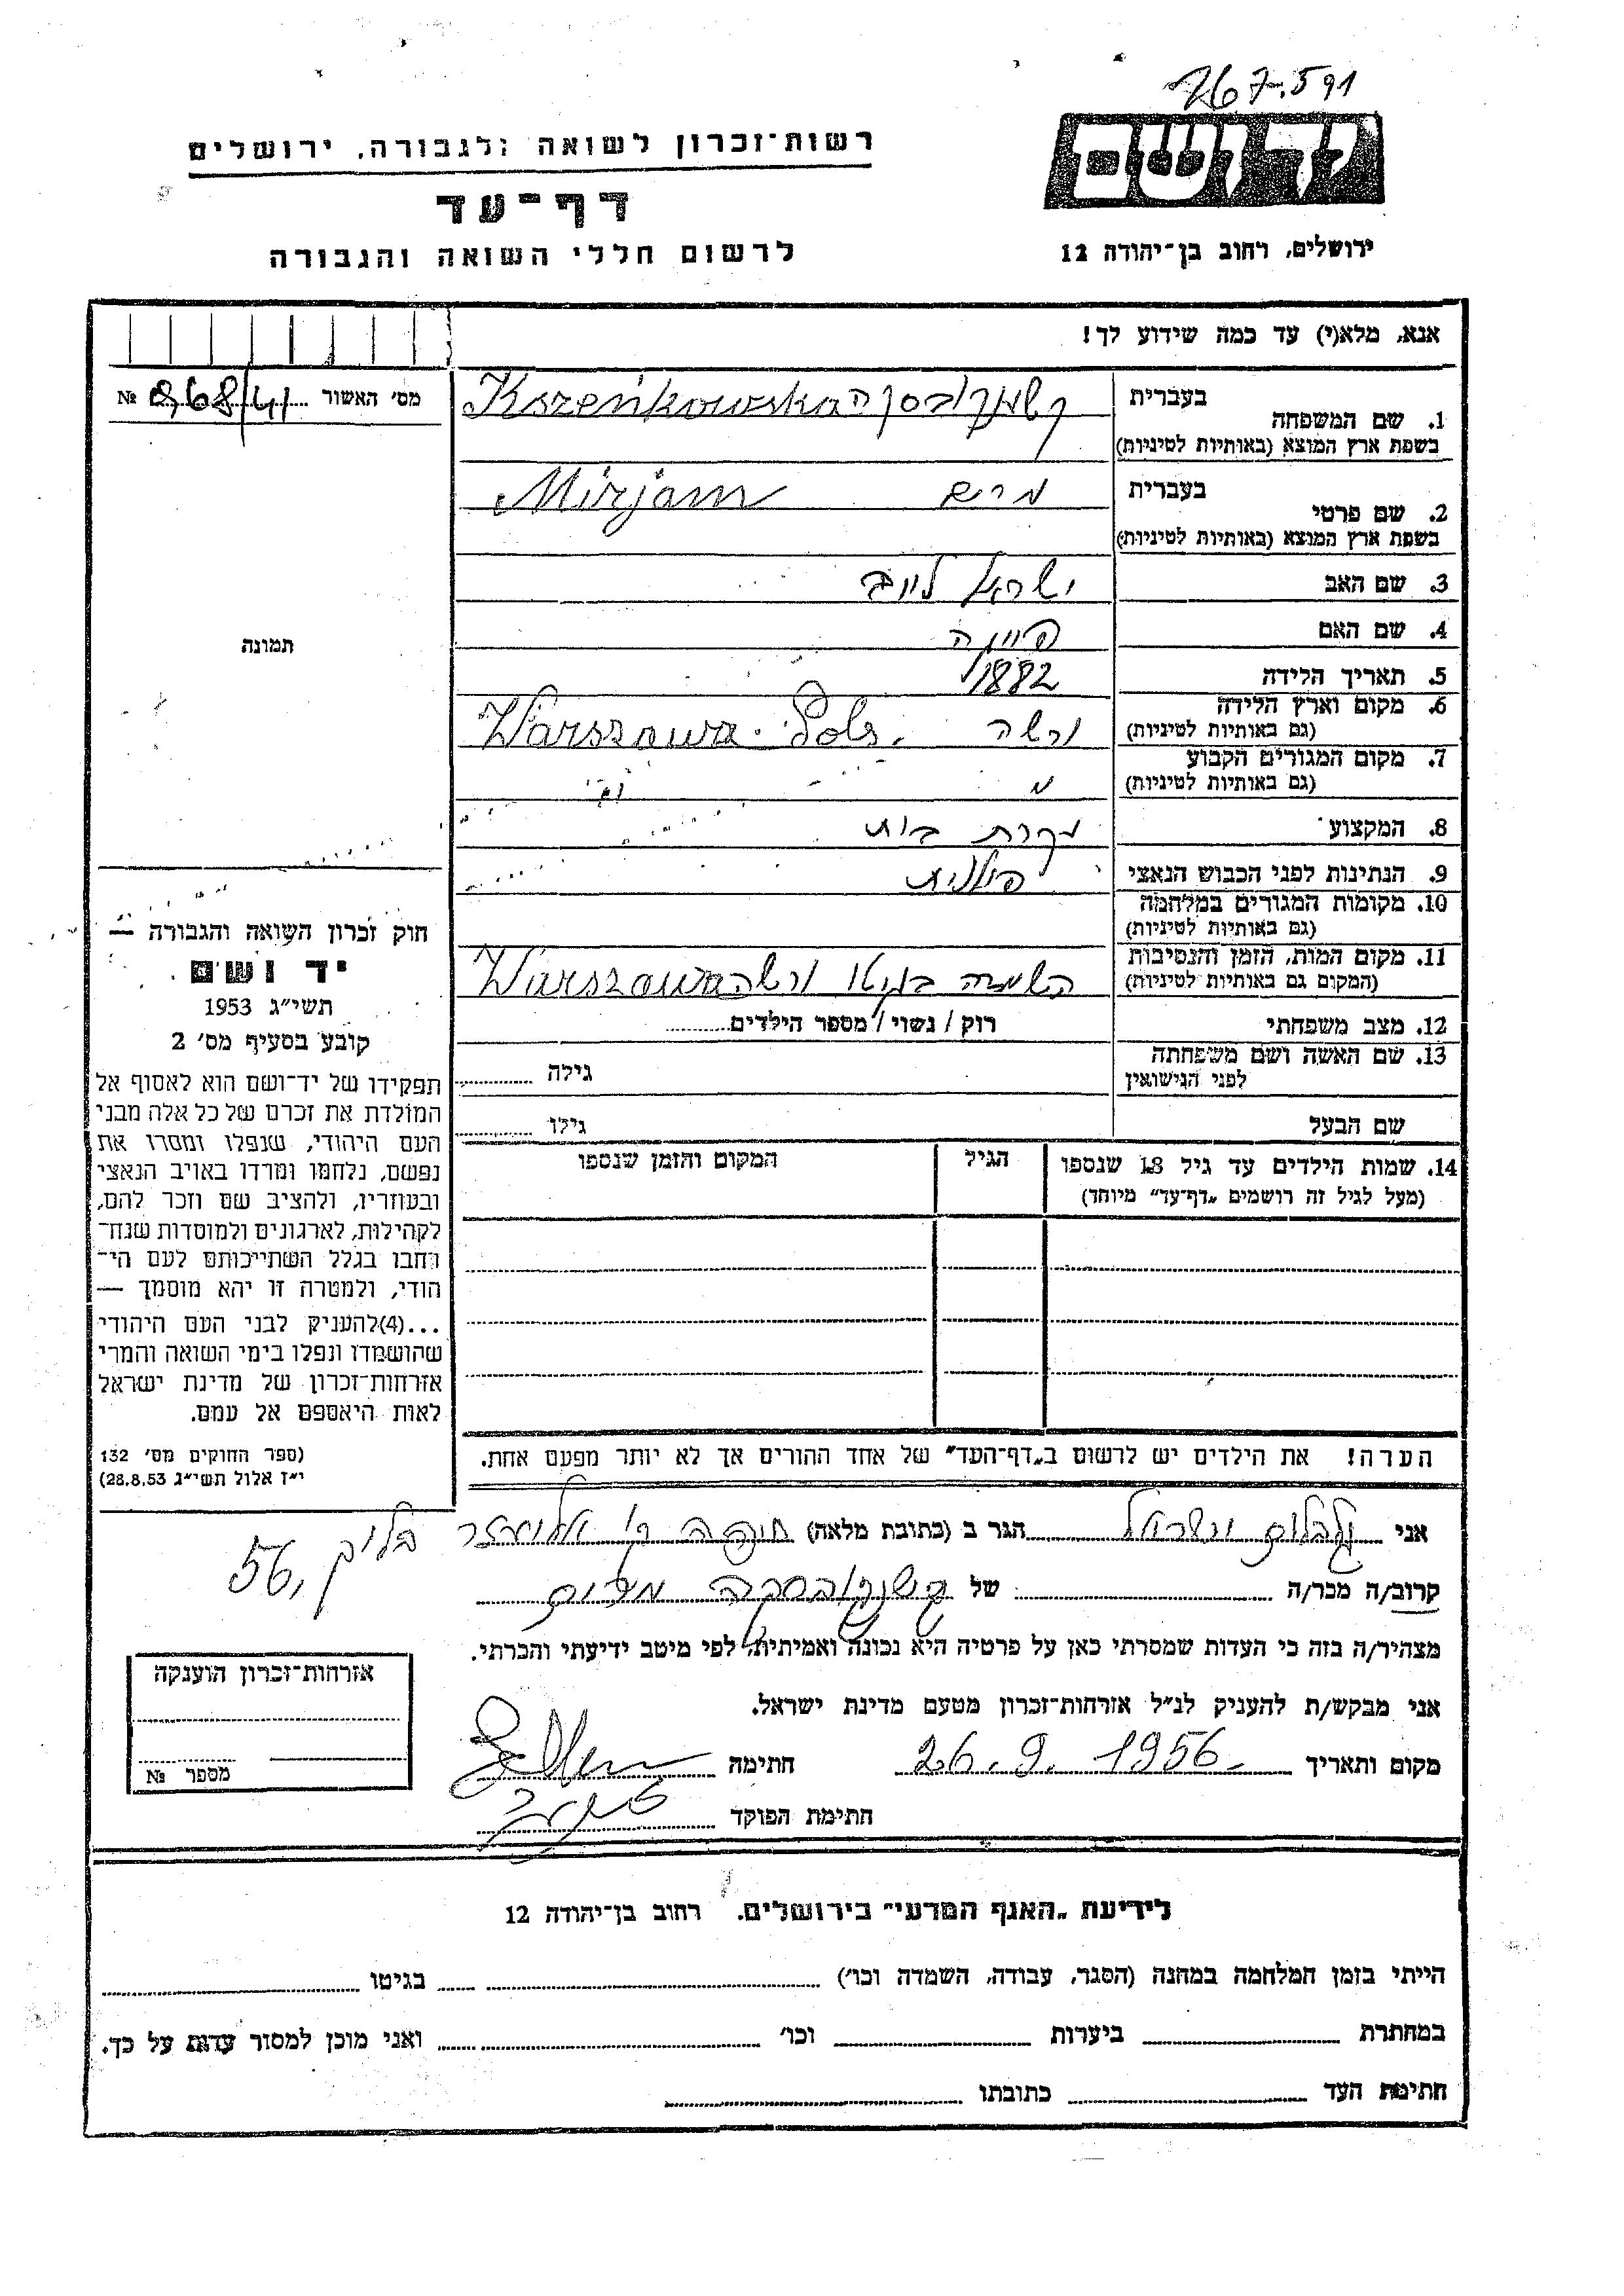 267.591
יד ושם
ירושלים, רחוב בן־יהודה 12
רשות־זכרון לשואה ולגבורה, ירושלים
דף־עד
לרשום חללי השואה והגבורה
אנא, מלא(י) עד כמה שידוע לך!
מס' האשור № 968/41
1. שם המשפחה בעברית
בשפת ארץ המוצא (באותיות לטיניות)
Kszeńkowska
2. שם פרטי בעברית מרים
בשפת ארץ המוצא (באותיות לטיניות)
Mirjam
3. שם האב ישראל לייב
4. שם האם
5. תאריך הלידה 1882
6. מקום וארץ הלידה ורשה Warszawa. Pols.
(גם באותיות לטיניות)
7. מקום המגורים הקבוע
(גם באותיות לטיניות)
8. המקצוע עקרת בית
9. הנתינות לפני הכבוש הנאצי פולנית
10. מקומות המגורים במלחמה
(גם באותיות לטיניות)
11. מקום המות, הזמן והנסיבות
(המקום גם באותיות לטיניות)
השמדה בגיטו ורשה Warszawa
12. מצב משפחתי רוק / נשוי / מספר הילדים
13. שם האשה ושם משפחתה
לפני הנישואין
גילה
שם הבעל
גילו
14. שמות הילדים עד גיל 18 שנספו
(מעל לגיל זה רושמים „דף־עד" מיוחד)
הגיל
המקום והזמן שנספו
הערה! את הילדים יש לרשום ב„דף־העד" של אחד ההורים אך לא יותר מפעם אחת.
תמונה
חוק זכרון השואה והגבורה —
יד ושם
תשי"ג 1953
קובע בסעיף מס' 2
תפקידו של יד־ושם הוא לאסוף אל
המולדת את זכרם של כל אלה מבני
העם היהודי, שנפלו ומסרו את
נפשם, נלחמו ומרדו באויב הנאצי
ובעוזריו, ולהציב שם וזכר להם,
לקהילות, לארגונים ולמוסדות שנח־
רבו בגלל השתייכותם לעם הי־
הודי, ולמטרה זו יהא מוסמך —
...(4)להעניק לבני העם היהודי
שהושמדו ונפלו בימי השואה והמרי
אזרחות־זכרון של מדינת ישראל
לאות היאספם אל עמם.
(ספר החוקים מס' 132
י"ז אלול תשי"ג 28.8.53)
אני ישראל הגר ב (כתובת מלאה) חיפה
56,
קרוב/ה מכר/ה של מרים
מצהיר/ה בזה כי העדות שמסרתי כאן על פרטיה היא נכונה ואמיתית, לפי מיטב ידיעתי והכרתי.
אני מבקש/ת להעניק לנ"ל אזרחות־זכרון מטעם מדינת ישראל.
מקום ותאריך 26.9.1956. חתימה
חתימת הפוקד
אזרחות־זכרון הוענקה
מספר №
לידיעת „האגף המדעי" בירושלים, רחוב בן־יהודה 12
הייתי בזמן המלחמה במחנה (הסגר, עבודה, השמדה וכו') בגיטו
במחתרת ביערות וכו' ואני מוכן למסור עדות על כך.
חתימת העד כתובתו